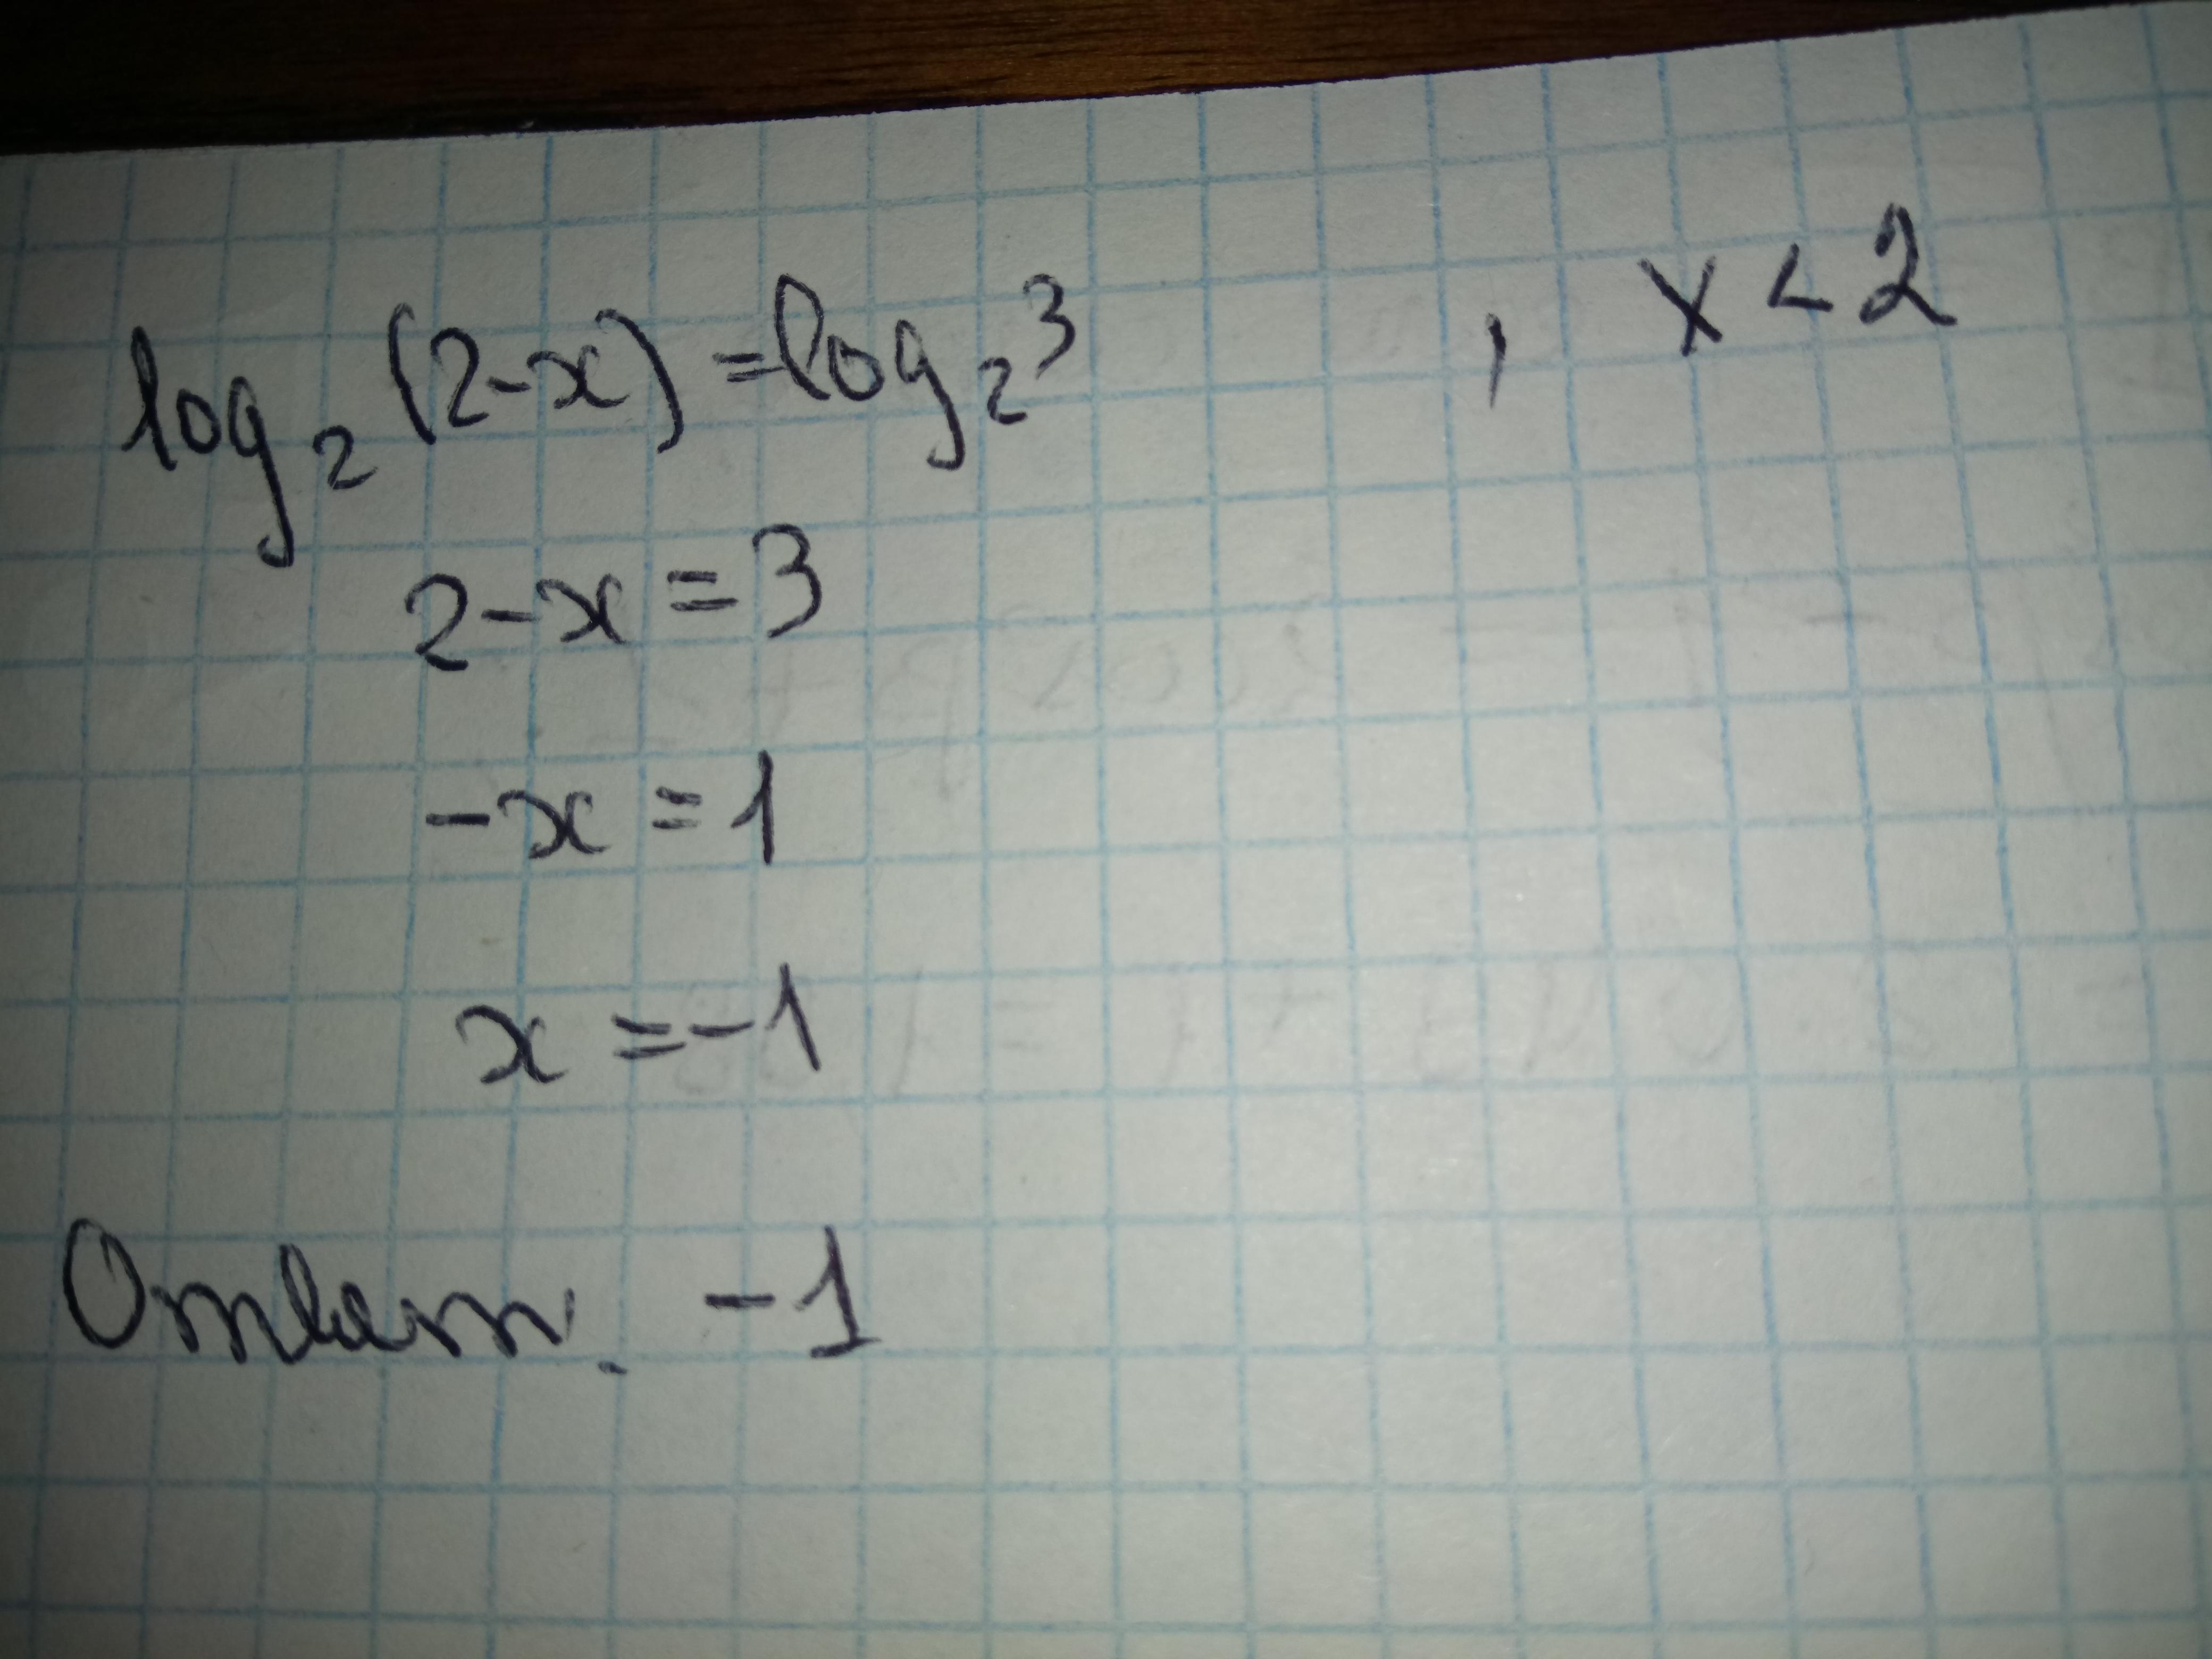 log₂(2-x)=log₂3 , x<2
2-x=3
-x=1
x=-1
Ответ. -1